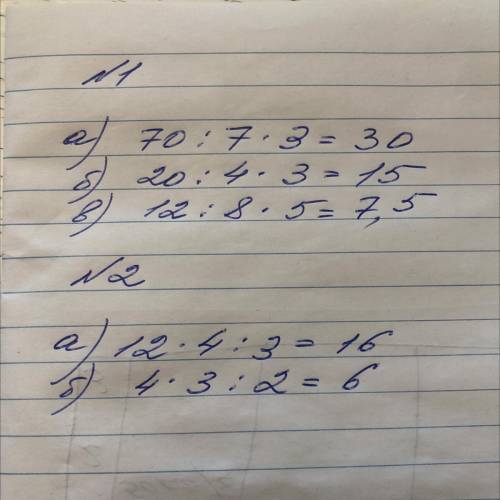 №1
а) 70 : 7 · 3 = 30
б) 20 : 4 · 3 = 15
в) 12 : 8 · 5 = 7,5
№2
а) 12 · 4 : 3 = 16
б) 4 · 3 : 2 = 6